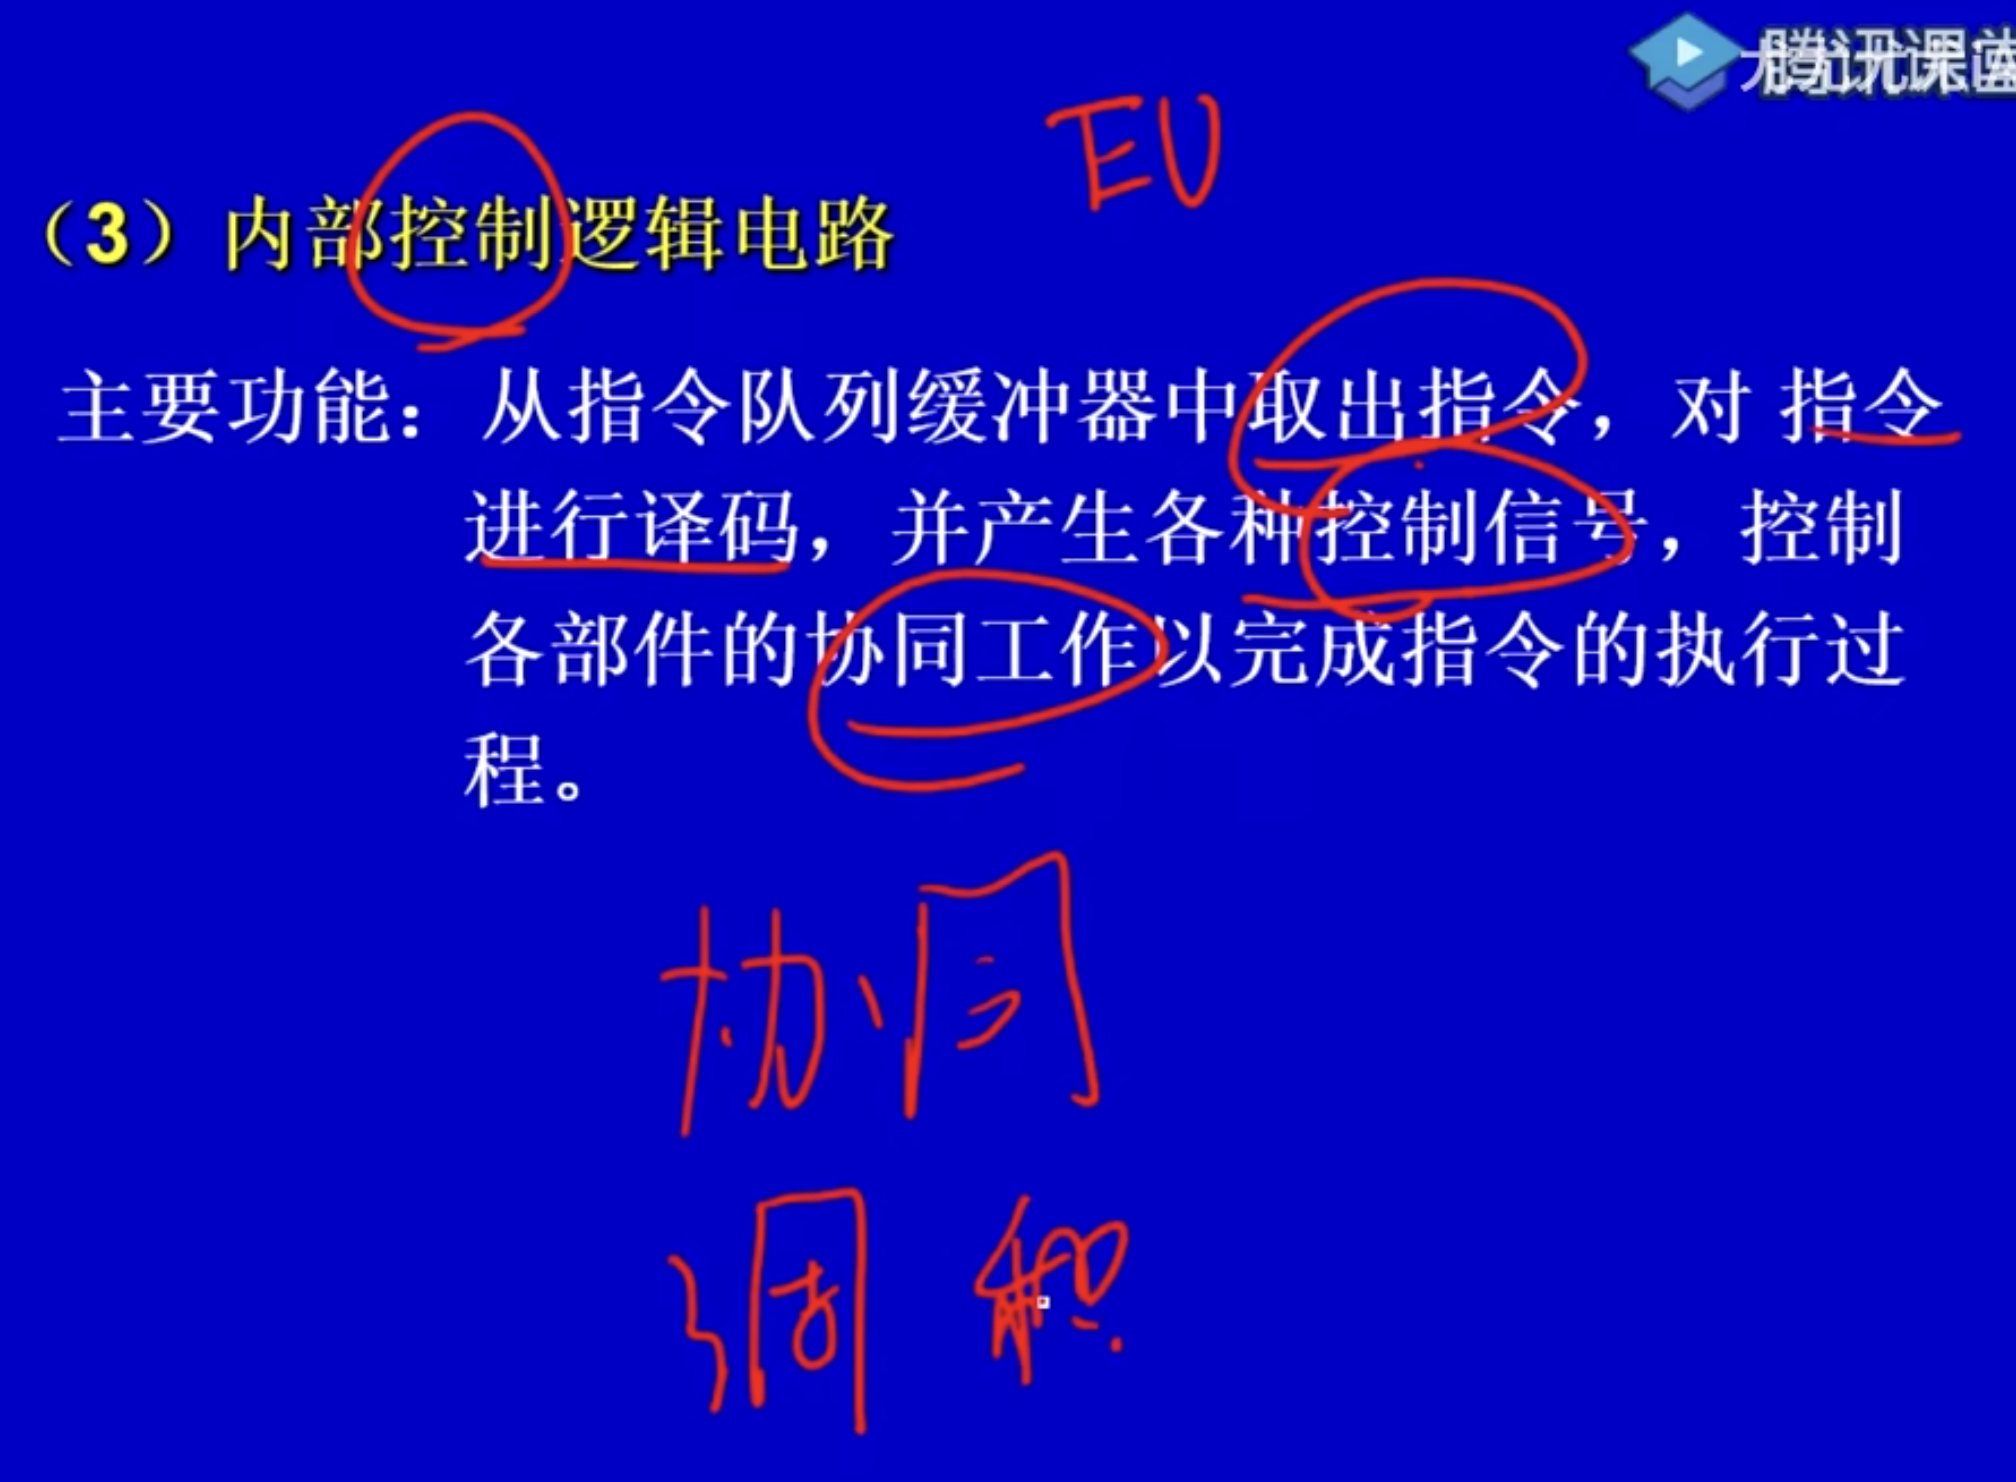 腾讯课堂
EU
（3）内部控制逻辑电路
主要功能：从指令队列缓冲器中取出指令，对 指令
进行译码，并产生各种控制信号，控制
各部件的协同工作以完成指令的执行过
程。
协同
调